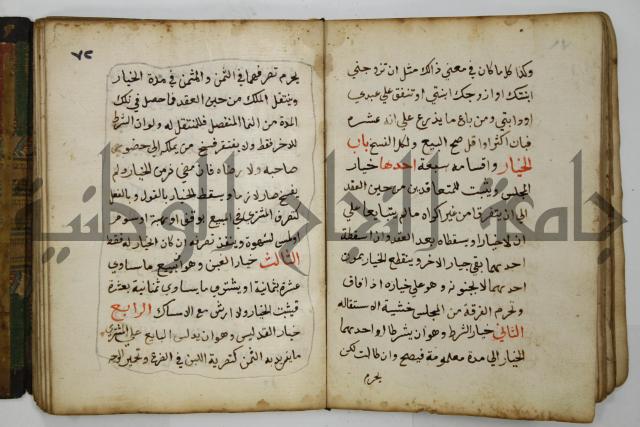 وكذا كل ما كان في معنى ذالك مثل ان تزوجني
ابنتك او ازوجك ابنتي او تنفق على عبدي
او دابتي ومن باع ما يذرع على انه عشرة
فبان اكثر او اقل صح البيع ولكل الفسخ باب
الخيار واقسامه سبعة احدها خيار
المجلس ويثبت للمتعاقدين من حين العقد
الى ان يتفرقا من غير اكراه ما لم يتبايعا على
ان لا خيار او يسقطاه بعد العقد وان اسقطه
احدهما بقي خيار الاخر وينقطع الخيار بموت
احدهما لا بجنونه وهو على خياره اذا افاق
وتحرم الفرقة من المجلس خشية الاستقاله
الثاني خيار الشرط وهو ان يشرطا او احدهما
الخيار الى مدة معلومة فيصح وان طالت لكن
يحرم
٧٢
يحرم تصرفهما في الثمن والمثمن في مدة الخيار
وينتقل الملك من حين العقد فما حصل في تلك
المدة من النما المنفصل فللمنتقل له ولو ان الشرط
للاخر فقط ولا يفتقر فسخ من يملكه الى حضور
صاحبه ولا رضاه فان مضى زمن الخيار ولم
يفسخ صار لازما ويسقط الخيار بالقول وبالفعل
كتصرف المشتري في المبيع بوقف او هبة او سوم
او لمس لشهوة وينفذ تصرفه ان كان الخيار له فقط
الثالث خيار الغبن وهو ان يبيع ما يساوي
عشرة بثمانية او يشتري ما يساوي ثمانية بعشرة
فيثبت الخيار ولا ارش مع الامساك الرابع
خيار التدليس وهو ان يدلس البايع على المشتري
ما يزيد به الثمن كتصرية اللبن في الضرع وتحمير الوجه
جامعة النجاح الوطنية